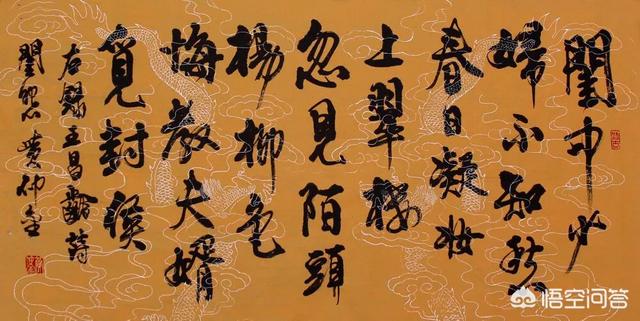 閨中少
婦不知愁
春日凝妆
上翠楼
忽見陌頭
楊柳色
悔教夫婿
覓封侯
右録王昌齡詩
閨怨
悟空问答